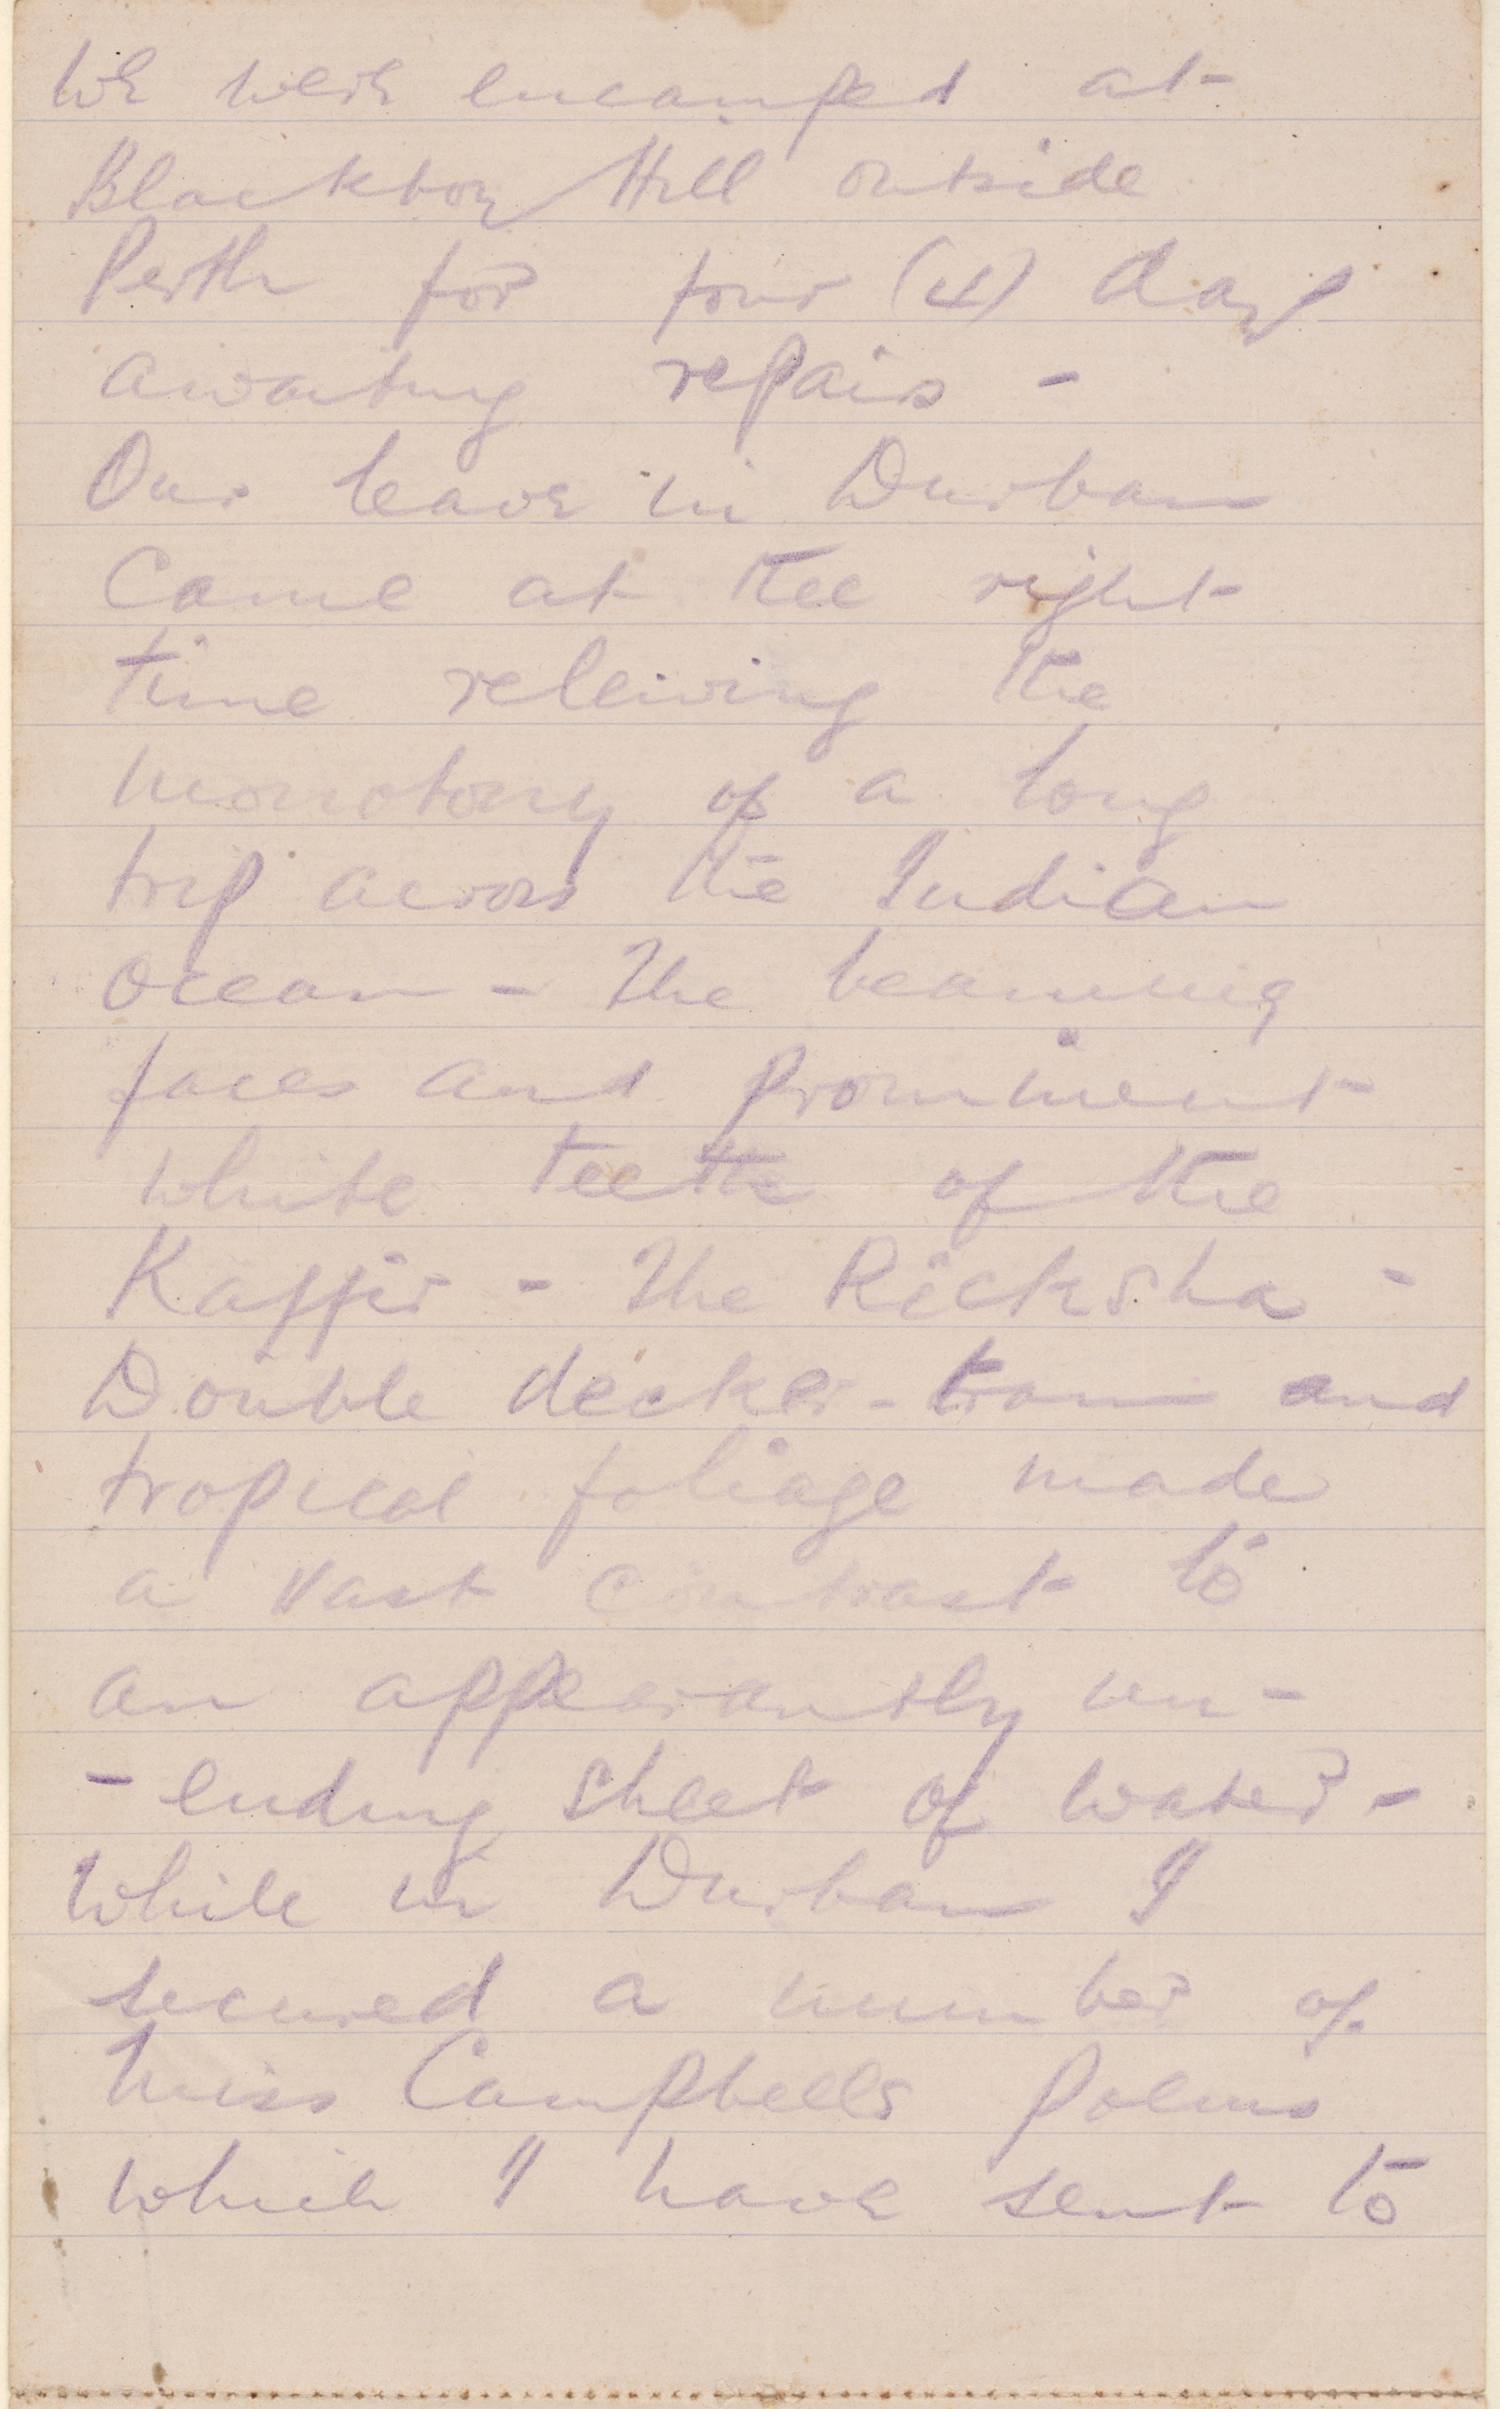 We were encamped at
Blackboy Hill outside
Perth for four (4) days
awaiting repairs -
Our leave in Durban
Came at the right
time releiving the
monotony of a long
trip across the Indian
Ocean - The beaming
faces and prominent
white teeth of the
Kaffir - The Ricksha -
Double decker - tram and
tropical foliage made
a vast contrast to
an appearantly un-
- ending sheet of water -
While in Durban I
secured a number of
Miss Campbells Poems
which I have sent to